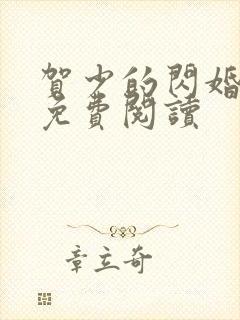 賀少的閃婚
免費閱讀
章立奇